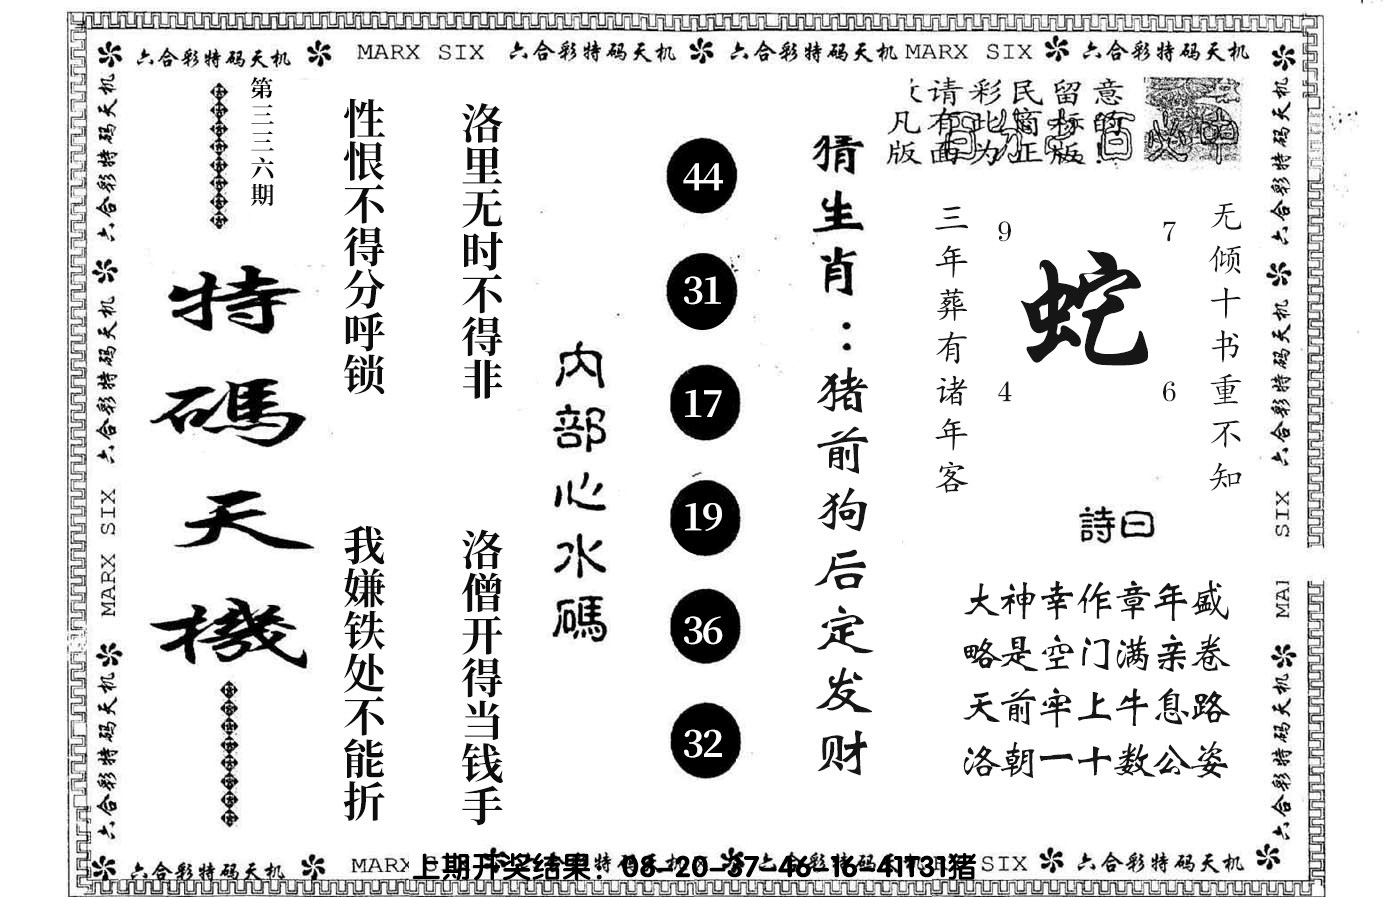 六合彩特码天机 MARX SIX 六合彩特码天机 六合彩特码天机 MARX SIX 六合彩特码天机
六合彩特码天机 六合彩特码天机 MARX SIX 六合彩特码天机
第三三六期
特碼天機
性恨不得分呼锁
我嫌铁处不能折
洛里无时不得非
洛僧开得当钱手
内部心水碼
44
31
17
19
36
32
猜生肖：猪前狗后定发财
请彩民留意
凡有此商标的
版面为正版!
三年葬有诸年客
9
7
蛇
4
6
无倾十书重不知
詩曰
大神幸作章年盛
略是空门满亲卷
天前牢上牛息路
洛朝一十数公姿
六合彩特码天机 六合彩特码天机 SIX MA 六合彩特码天机
六合彩特码天机 MARX SIX 六合彩特码天机
上期开奖结果：08-20-37-46-16-41T31猪